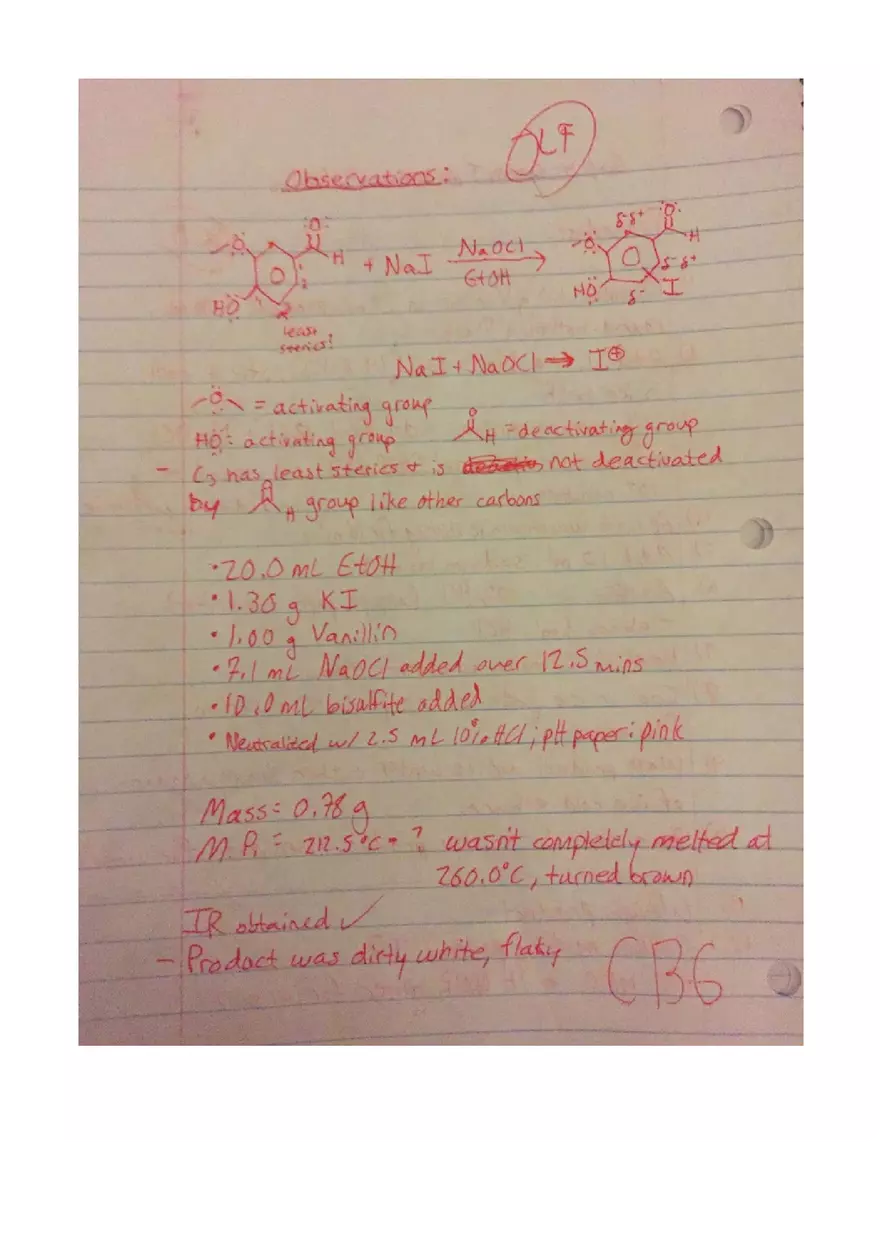 LF
Observations:
:O: :O: :O:
H + NaI NaOCl EtOH H
HO HO I
δ- δ+ δ- δ+ δ-
least
sterics!
NaI + NaOCl → I⊕
-O- = activating group
HO: activating group O H = deactivating group
- C3 has least sterics + is not deactivated
by O H group like other carbons
• 20.0 mL EtOH
• 1.36 g KI
• 1.00 g Vanillin
• 7.1 mL NaOCl added over 12.5 mins
• 10.0 mL bisulfite added
• Neutralized w/ 2.5 mL 10% HCl; pH paper: pink
Mass = 0.78 g
M.P. = 212.5°C - ? wasn't completely melted at
260.0°C, turned brown
IR obtained ✓
- Product was dirty white, flaky
CBG